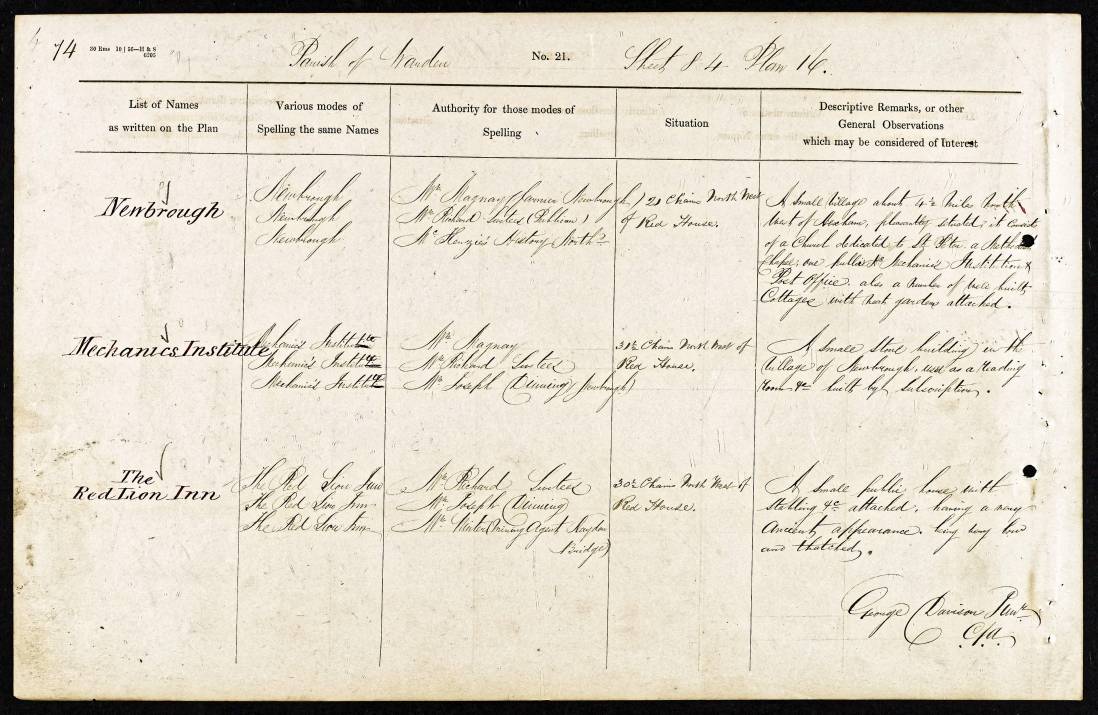 74 30 Rms 10 | 56—H & S
6205
Parish of Warden No. 21. Sheet 84 Plan 16.
List of Names
as written on the Plan
Various modes of
Spelling the same Names
Authority for those modes of
Spelling
Situation
Descriptive Remarks, or other
General Observations
which may be considered of Interest
Newbrough
Newbrough
Newbrough
Newbrough
Mr. Magnay (farmer Newbrough)
Mr. Richard (Publican)
History North
21 Chains North West
of Red House.
A small Village about 4½ Miles North
West of Hexham, pleasantly situated; it consists
of a Church dedicated to St. Peter a Methodist
Chapel, one public Ho. Mechanics Institution &
Post Office. also a number of well built
Cottages with neat garden attached.
Mechanics Institute
Mechanics Institute
Mechanics Institute
Mechanics Institute
Mr. Magnay
Mr. Richard
Mr. Joseph (Newbrough)
Chains North West of
Red House.
A Small Stone building in the
Village of Newbrough. used as a reading
room &c. built by Subscription.
The
Red Lion Inn
The Red Lion Inn
The Red Lion Inn
The Red Lion Inn
Mr. Richard
Mr. Joseph
Mr. (Mining Agent Haydon
Bridge)
Chains North West of
Red House.
A small public house with
stabling &c. attached. having a very
ancient appearance. being very low
and thatched.
George Davison
C/A.